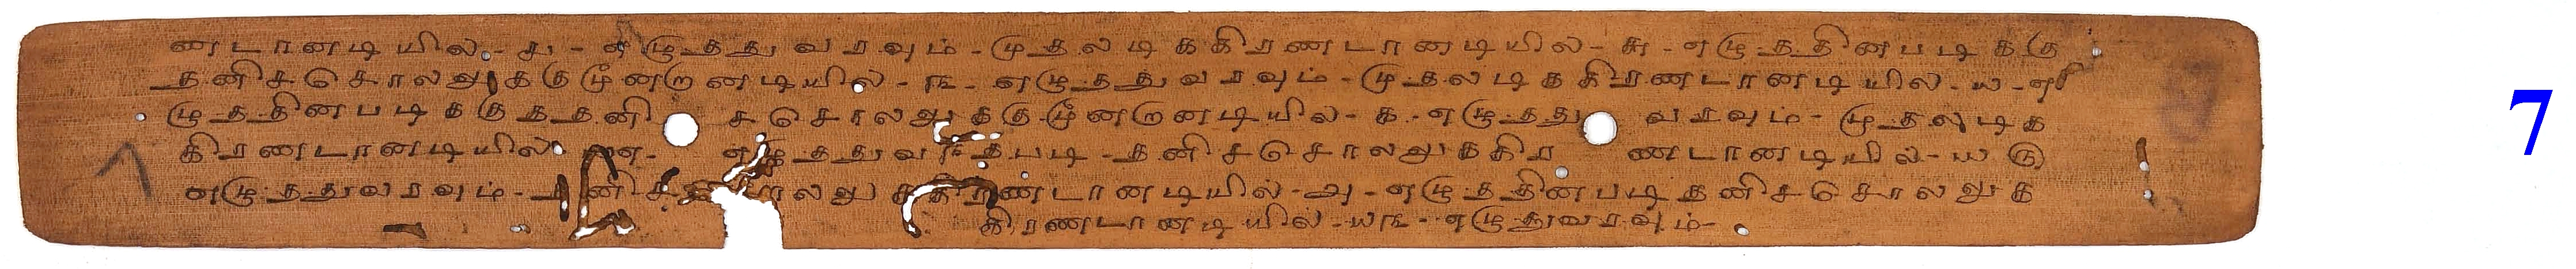 ணடானடியில - சு - எழுதது வரவும் - முதலடிககிரணடானடியில - சு - எழுததினபடிககு
தனிசசொலலுககுமூனறானடியில் - ௩ - எழுததுவரவும் - முதலடிககிரணடானடியில் - ய - எ
ழுததினபடிககுதனி சசொலலுககுமூனறானடியில - க - எழுதது வரவும் - முதலடிக
கிரணடானடியில் எழுததுவ தபடி - தனிசசொலலுககிர ணடானடியில் - ய௫
எழுததுவரவும் - தனிச லலு ககிரணடானடியில் - அ - எழுததினபடி தனிசசொலலுக
கிரணடானடியில் - ய௩ - எழுதுவரவும் -
7